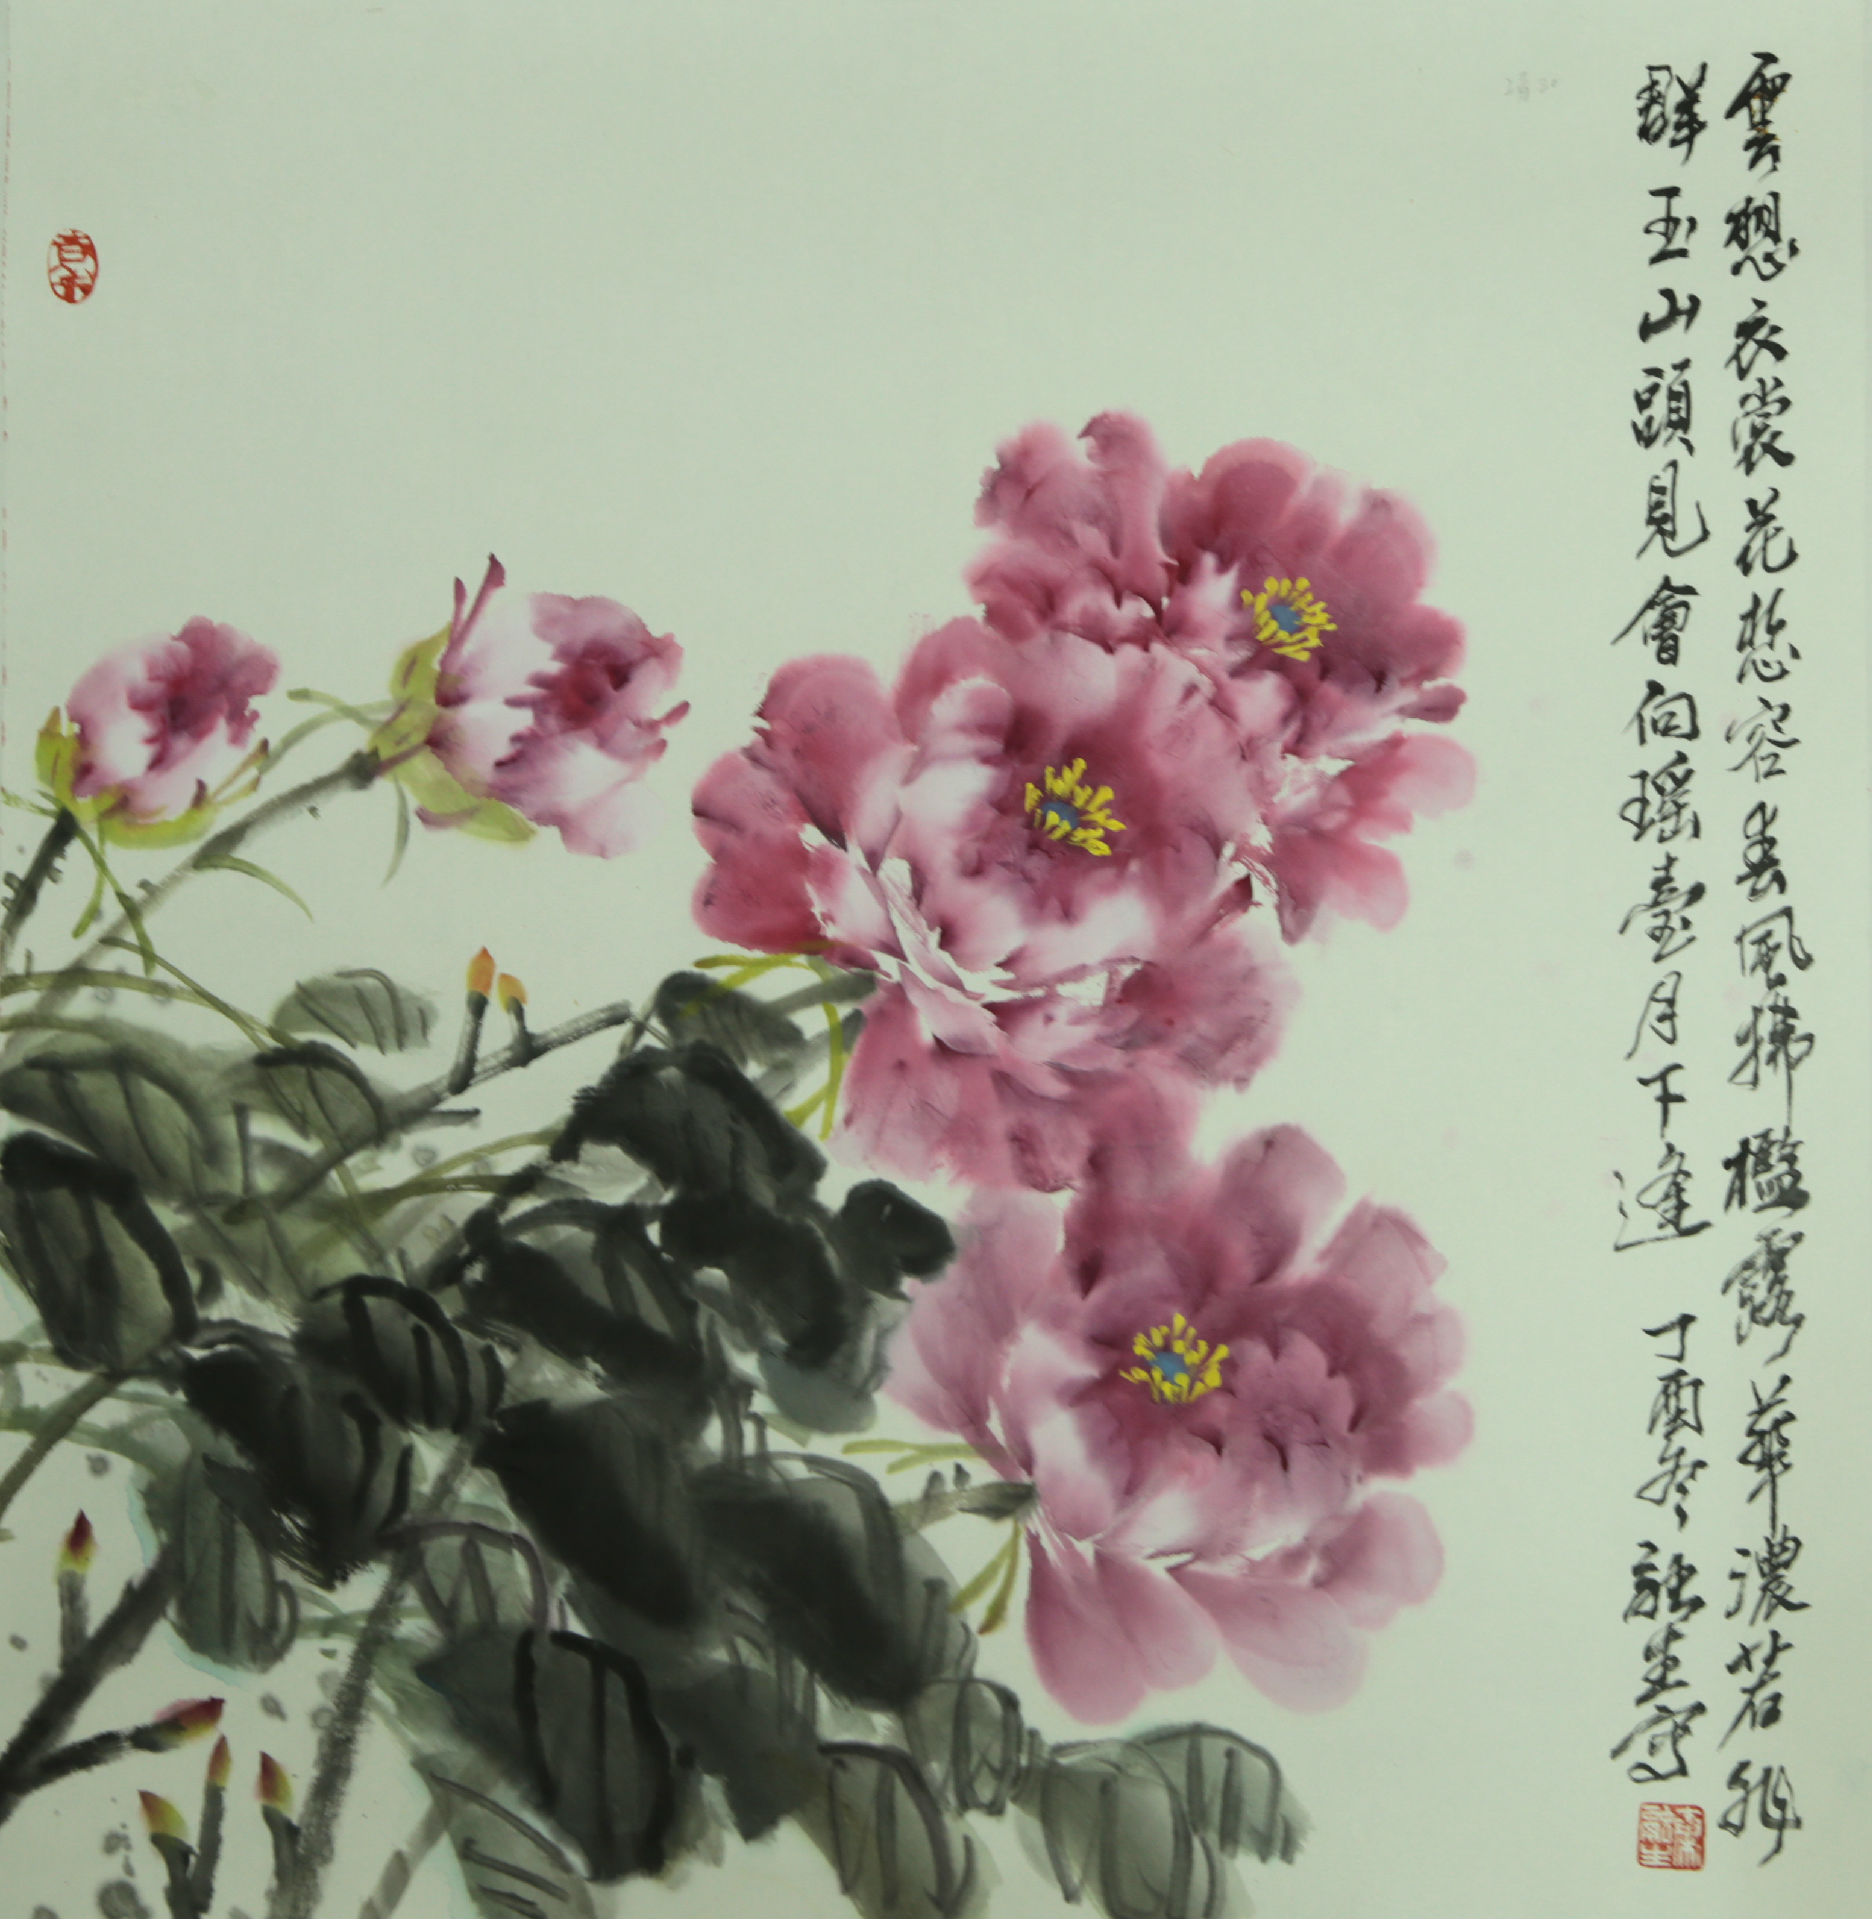 雲想衣裳花想容春風拂檻露華濃若非
群玉山頭見會向瑤臺月下逢 丁酉冬 融生寫